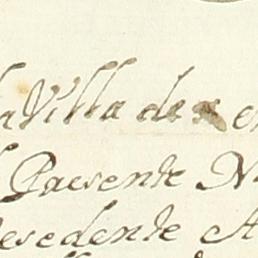 la Villa de en
Presente N
resedente A